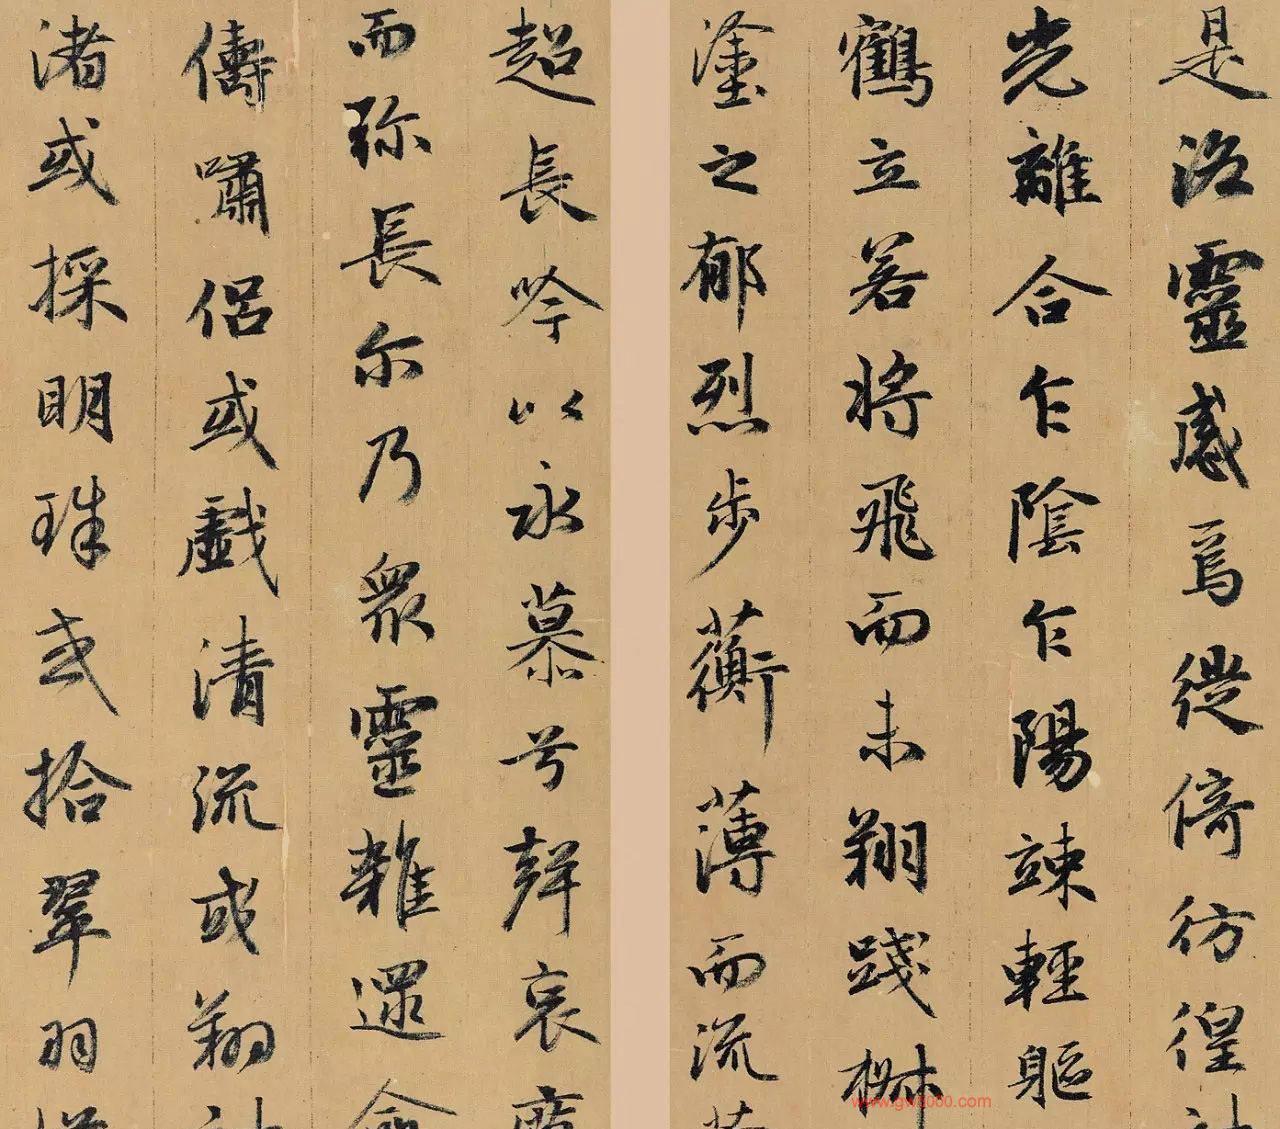 是洛靈感焉徙倚彷徨
光離合乍陰乍陽竦輕軀
鶴立若將飛而未翔踐椒
塗之郁烈步蘅薄而流
超長吟以永慕兮聲哀厲
而弥長尔乃衆靈雜遝命
儔嘯侶或戲清流或翔
渚或採明珠或拾翠羽